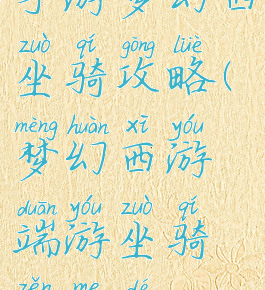 手游梦幻西
zuò qí gōng lüè
坐骑攻略(
mèng huàn xī yóu
梦幻西游
duān yóu zuò qí
端游坐骑
zěn me dé